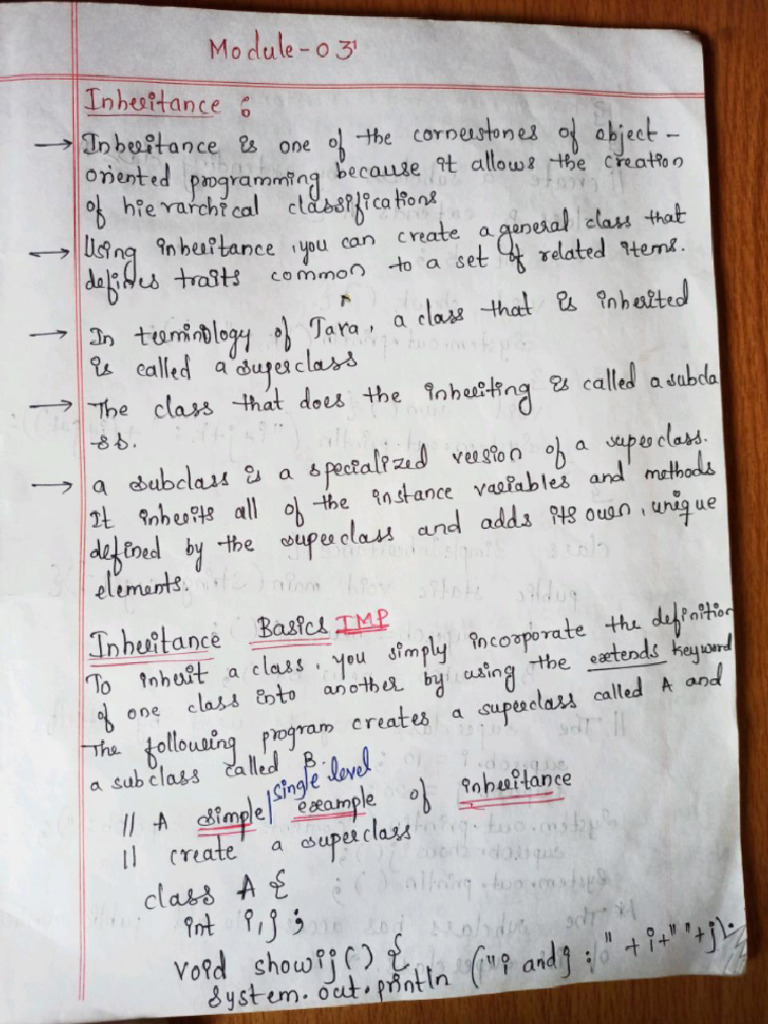 Module-03
Inheritance :
→ Inheritance is one of the cornerstones of object-
oriented programming because it allows the creation
of hierarchical classifications.
→ Using inheritance, you can create a general class that
defines traits common to a set of related items.
→ In terminology of Java, a class that is inherited
is called a superclass
→ The class that does the inheriting is called a subcla
-ss.
→ a subclass is a specialized version of a superclass.
It inherits all of the instance variables and methods
defined by the superclass and adds its own, unique
elements.
Inheritance Basics IMP
To inherit a class, you simply incorporate the definition
of one class into another by using the extends keyword
The following program creates a superclass called A and
a subclass called B.
// A simple/single level example of inheritance
// create a superclass
class A {
int i,j;
void showij() {
System.out.println ("i and j : " + i+" "+j);